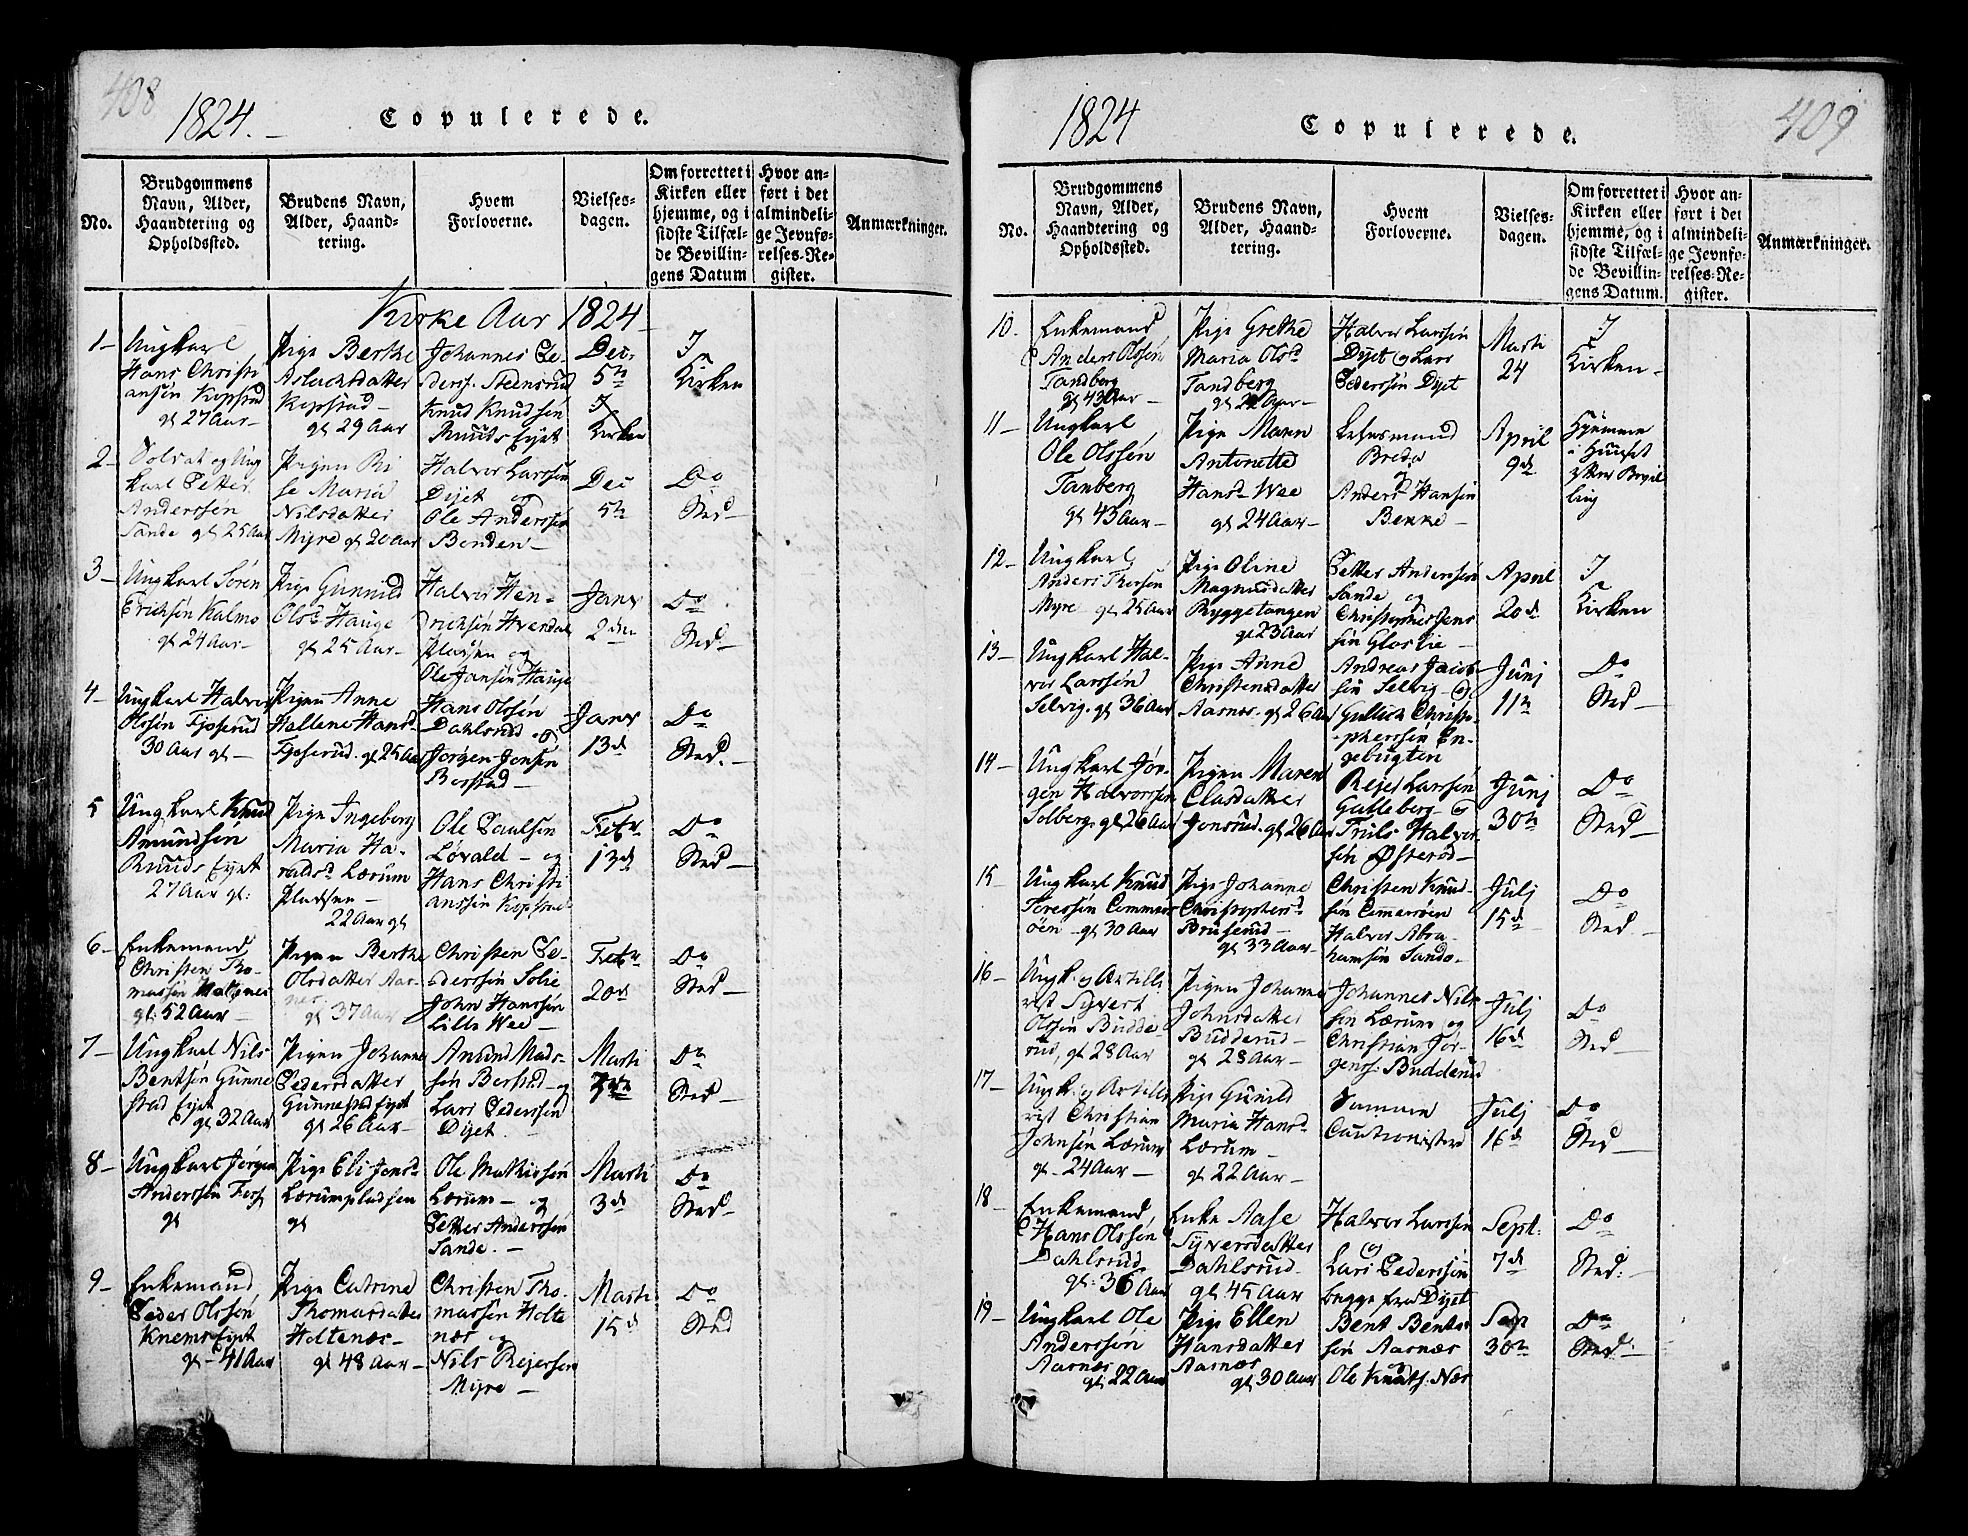 408
1824.
Copulerede.
No.
Brudgommens
Navn, Alder,
Haandtering og
Opholdssted.
Brudens Navn,
Alder, Haand-
tering.
Hvem
Forloverne.
Vielses-
dagen.
Om forrettet i
Kirken eller
hjemme, og i
sidste Tilfæl-
de Bevillin-
gens Datum
Hvor an-
ført i det
almindeli-
ge Jevnfø-
relses-Re-
gister.
Anmærkninger.
Kirke Aar 1824
1
Ungkarl
Hans Christi
ansøn Kopstad
gl 27 Aar
Pige Berthe
Aslachsdatter
Kopstad
gl 29 Aar
Johannes Pe-
derss. Steensrud
Knud Knudsøn
Ruuds Eyet
Decr
5te
I
Kirken
I
Kirken
2
Soldat og Ung
karl Petter
Anderssen
Sande gl 25 Aar
Pigen Ri
se Maria
Nilsdatter
Myre gl 20 Aar
Halvor Larssøn
Dyet og
Ole Anderssøn
Benden
Dec
5te
Do
Sted
3
Ungkarl Søren
Erichsøn Kalmo
gl 24 Aar
Pige Gunnild
Olsd Hauge
gl 25 Aar
Halvor Hen-
drichsøn Hvendal
Pladsen og
Ole Jansøn Hauge
Janr
2den
Do
Sted
4
Ungkarl Halvor
Olssøn Fjøserud
30 Aar gl
Pigen Anne
Hellene Hansd
Fjøserud gl 25 Aar
Hans Olssøn
Dahlsrud og
Jørgen Jonsøn
Berstad
Janr
13de
Do
Sted.
5
Ungkarl Knud
Amundsøn
Ruuds Eyet
27 Aar gl:
Pige Ingeborg
Maria Ha-
radsd Lærum
Pladsen
22 Aar gl
Ole Paulsøn
Løvald og
Hans Christi
anssøn Kopstad
Febr
13de
Do
Sted
6
Enkemand
Christen Tho-
massøn Holtenæs
gl: 52 Aar
Pigen Berthe
Olsdatter Aar-
næs
gl 37 Aar
Christen Pe-
derssøn Solie
John Hanssøn
Lille Wee
Febr
20de
Do
Sted
7
Ungkarl Nils
Bentsøn Gunne
stad Eyet
gl 32 Aar
Pigen Johanne
Pedersdatter
Gunnestad Eyet
gl 26 Aar
Amund Mads-
søn Berstad og
Lars Pederssøn
Dyet.
Marti
Do
Sted
8
Ungkarl Jørgen
Anderssøn
gl
Pige Eli Jonsd
Lærumpladsen
gl
Ole Mathiessøn
Lærum og
Petter Anderssøn
Sande.
Marti
3de
Do
Sted
9
Enkemand
Peder Olssøn
Knems Eyet
gl 41 Aar
Pige Catrine
Thomasdatter
Holtenæs
gl 48 Aar
Christen Tho-
massen Holte
næs og
Nils Reyersen
Myre
Marti
15de
Do
Sted
409
1824
Copulerede.
No.
Brudgommens
Navn, Alder,
Haandtering og
Opholdssted.
Brudens Navn,
Alder, Haand-
tering.
Hvem
Forloverne.
Vielses-
dagen.
Om forrettet i
Kirken eller
hjemme, og i
sidste Tilfæl-
de Bevillin-
gens Datum.
Hvor an-
ført i det
almindeli-
ge Jevnfø-
relses-Re-
gister.
Anmærkninger.
10.
Enkemand
Anders Olssøn
Tandberg
gl 43 Aar
Pige Grethe
Maria Olsd
Tandberg
gl 22 Aar
Halvor Larssøn
Dyet og Lars
Pederssøn Dyet
Marti
24
I
Kirken
11
Ungkarl
Ole Olssøn
Tanberg
gl 43 Aar
Pige Maren
Antonette
Hansd Wee
gl 24 Aar
Lehnsmand
Breda
og
Anders Hansøn
Bekke
April
9de
Hjemme
i Huuset
efter Bevil
ling
12
Ungkarl
Anders Thorsøn
Myre gl 25 Aar
Pige Oline
Magnusdatter
Ryggetangen
gl 23 Aar
Petter Anderssøn
Sande og
Christophersens
søn Gloslie
April
20de
I
Kirken
13
Ungkarl Hal-
vor Larssøn
Selvig. gl 36 Aar
Pige Anne
Christensdatter
Aarnæs. gl 26 Aar
Andreas Jacob-
søn Selvig og
Gullich Christo-
pherssøn En-
gebugten
Junj
11te
Do
Sted
14
Ungkarl Jør-
gen Halvorssøn
Solberg. gl 26 Aar
Pigen Maren
Clasdatter
Jonsrud. gl 26 Aar
Reyer Larssøn
Galleberg og
Truls Halvor
søn Østerød
Junj
30te
Do
Sted
15
Ungkarl Knud
Toressøn Commers
øen gl 30 Aar
Pige Johanne
Christophersd
Bruserud
gl 33 Aar
Christen Knud-
søn Comersøen
Halvor Abra-
hamsøn Sando.
Julj
15de
Do
Sted
16
Ungk. og Artille
rist Syvert
Olssøn Budde-
rud, gl 28 Aar
Pigen Johanne
Johnsdatter
Budderud
gl 28 Aar
Johannes Nils-
søn Lærum og
Christian Jør-
genss: Budderud
Julj
16de
Do
Sted
17
Ungk. og Artille
rist Christian
Johnsøn Lærum
gl 24 Aar
Pige Gunild
Maria Hansd
Lærum
gl 22 Aar
Samme
Cautionister
Julj
16de
Do
Sted
18
Enkemand
Hans Olssøn
Dahlsrud
gl: 36 Aar
Enke Aase
Syversdatter
Dahlsrud
gl 45 Aar
Halvor Larssøn
og
Lars Pederssøn
begge fra Dyet
Sept:
7de
Do
Sted:
19
Ungkarl Ole
Anderssøn
Aarnæs
gl 22 Aar
Pige Ellen
Hansdatter
Aarnæs
gl 30 Aar
Bent Bents-
søn Aarnæs
og
Ole Knuds: Nær
Sep
30te
Do
Sted